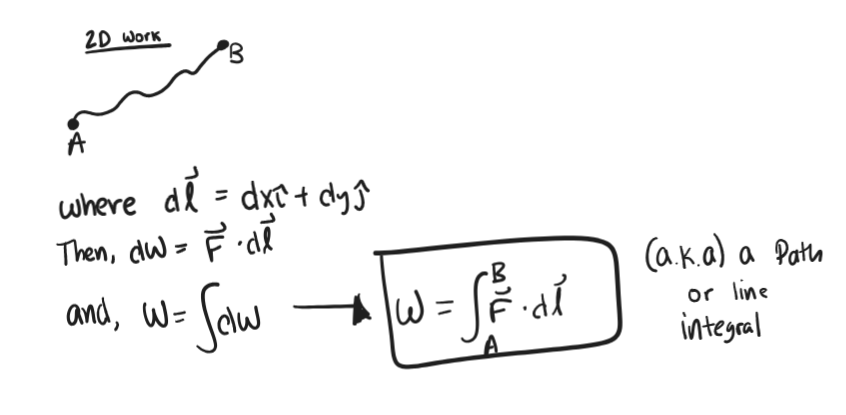 2D Work
B
A
where dl⃗ = dxî + dyĵ
Then, dW = F⃗ · dl⃗
and, W = ∫dW → W = ∫_A^B F⃗ · dl⃗
(a.k.a) a Path
or line
integral